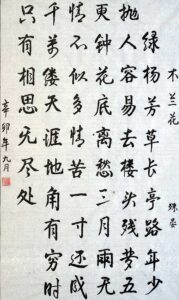 木兰花 殊晏
绿杨芳草长亭路年少
抛人容易去楼头残梦五
更钟花底离愁三月雨无
情不似多情苦一寸还成
千萬缕天涯地角有穷时
只有相思无尽处
辛卯年九月